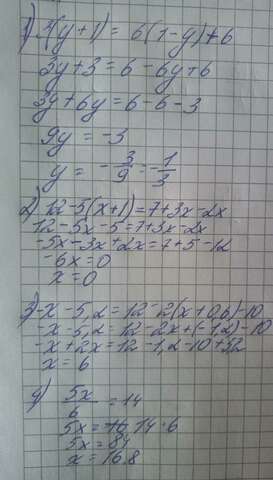 1) 3(y+1) = 6(1-y)+6
3y+3 = 6-6y+6
3y+6y = 6-6-3
9y = -3
y = -3/9 = -1/3
2) 12-5(x+1)=7+3x-2x
12-5x-5=7+3x-2x
-5x-3x+2x=7+5-12
-6x=0
x=0
3) -x-5,2=12-2(x+0,6)-10
-x-5,2=12-2x+(-1,2)-10
-x+2x=12-1,2-10+5,2
x=6
4) 5x/6 = 14
5x = 14·6
5x = 84
x = 16,8